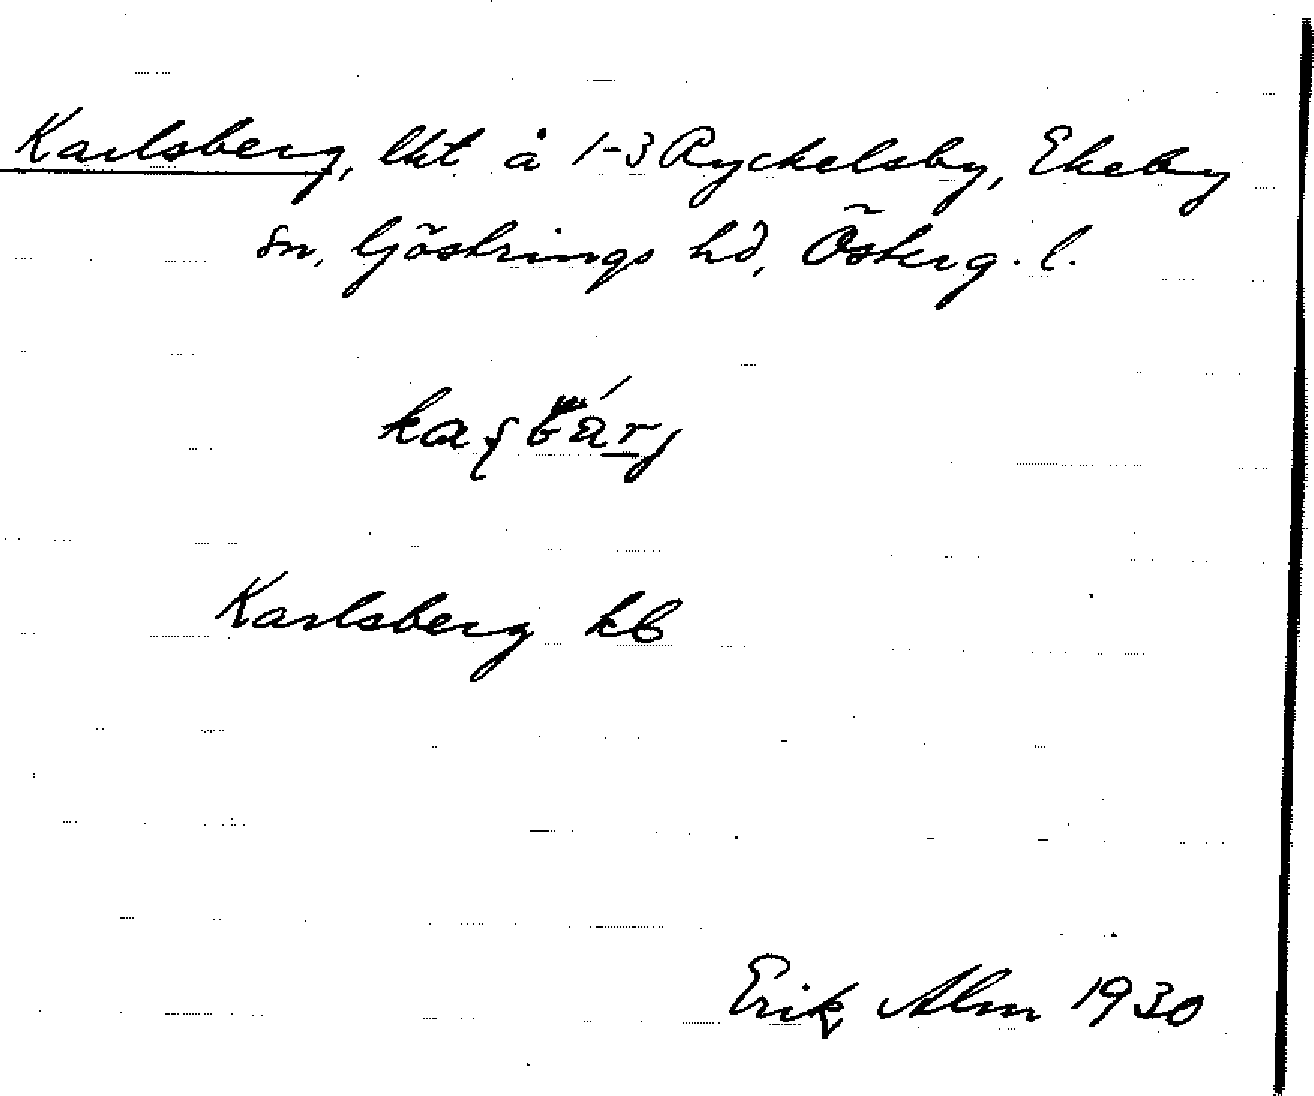 Karlsberg, lht å 1-3 Ryckelsby, Ekeby
sn, Göstrings hd, Österg. l.
Karlsberg kb
Erik Alm 1930